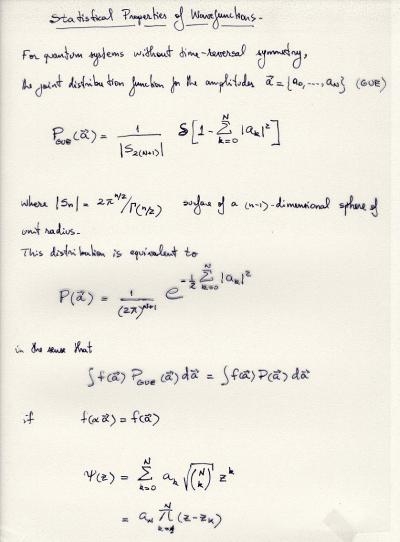 Statistical Properties of Wavefunctions.
For quantum systems without time-reversal symmetry,
the joint distribution function for the amplitudes a⃗ = {a₀, ..., a_N} (GUE)
P_GUE(a⃗) = 1/|S_{2(N+1)}| δ[1 - ∑_{k=0}^{N} |a_k|²]
where |S_n| = 2π^{n/2}/Γ(n/2) surface of a (n-1)-dimensional sphere of
unit radius.
This distribution is equivalent to
P(a⃗) = 1/(2π)^{N+1} e^{-½ ∑_{k=0}^{N} |a_k|²}
in the sense that
∫f(a⃗) P_GUE(a⃗) da⃗ = ∫f(a⃗) P(a⃗) da⃗
if f(αa⃗) = f(a⃗)
Ψ(z) = ∑_{k=0}^{N} a_k √(N k) z^k
= a_N ∏_{k=1}^{N} (z - z_k)